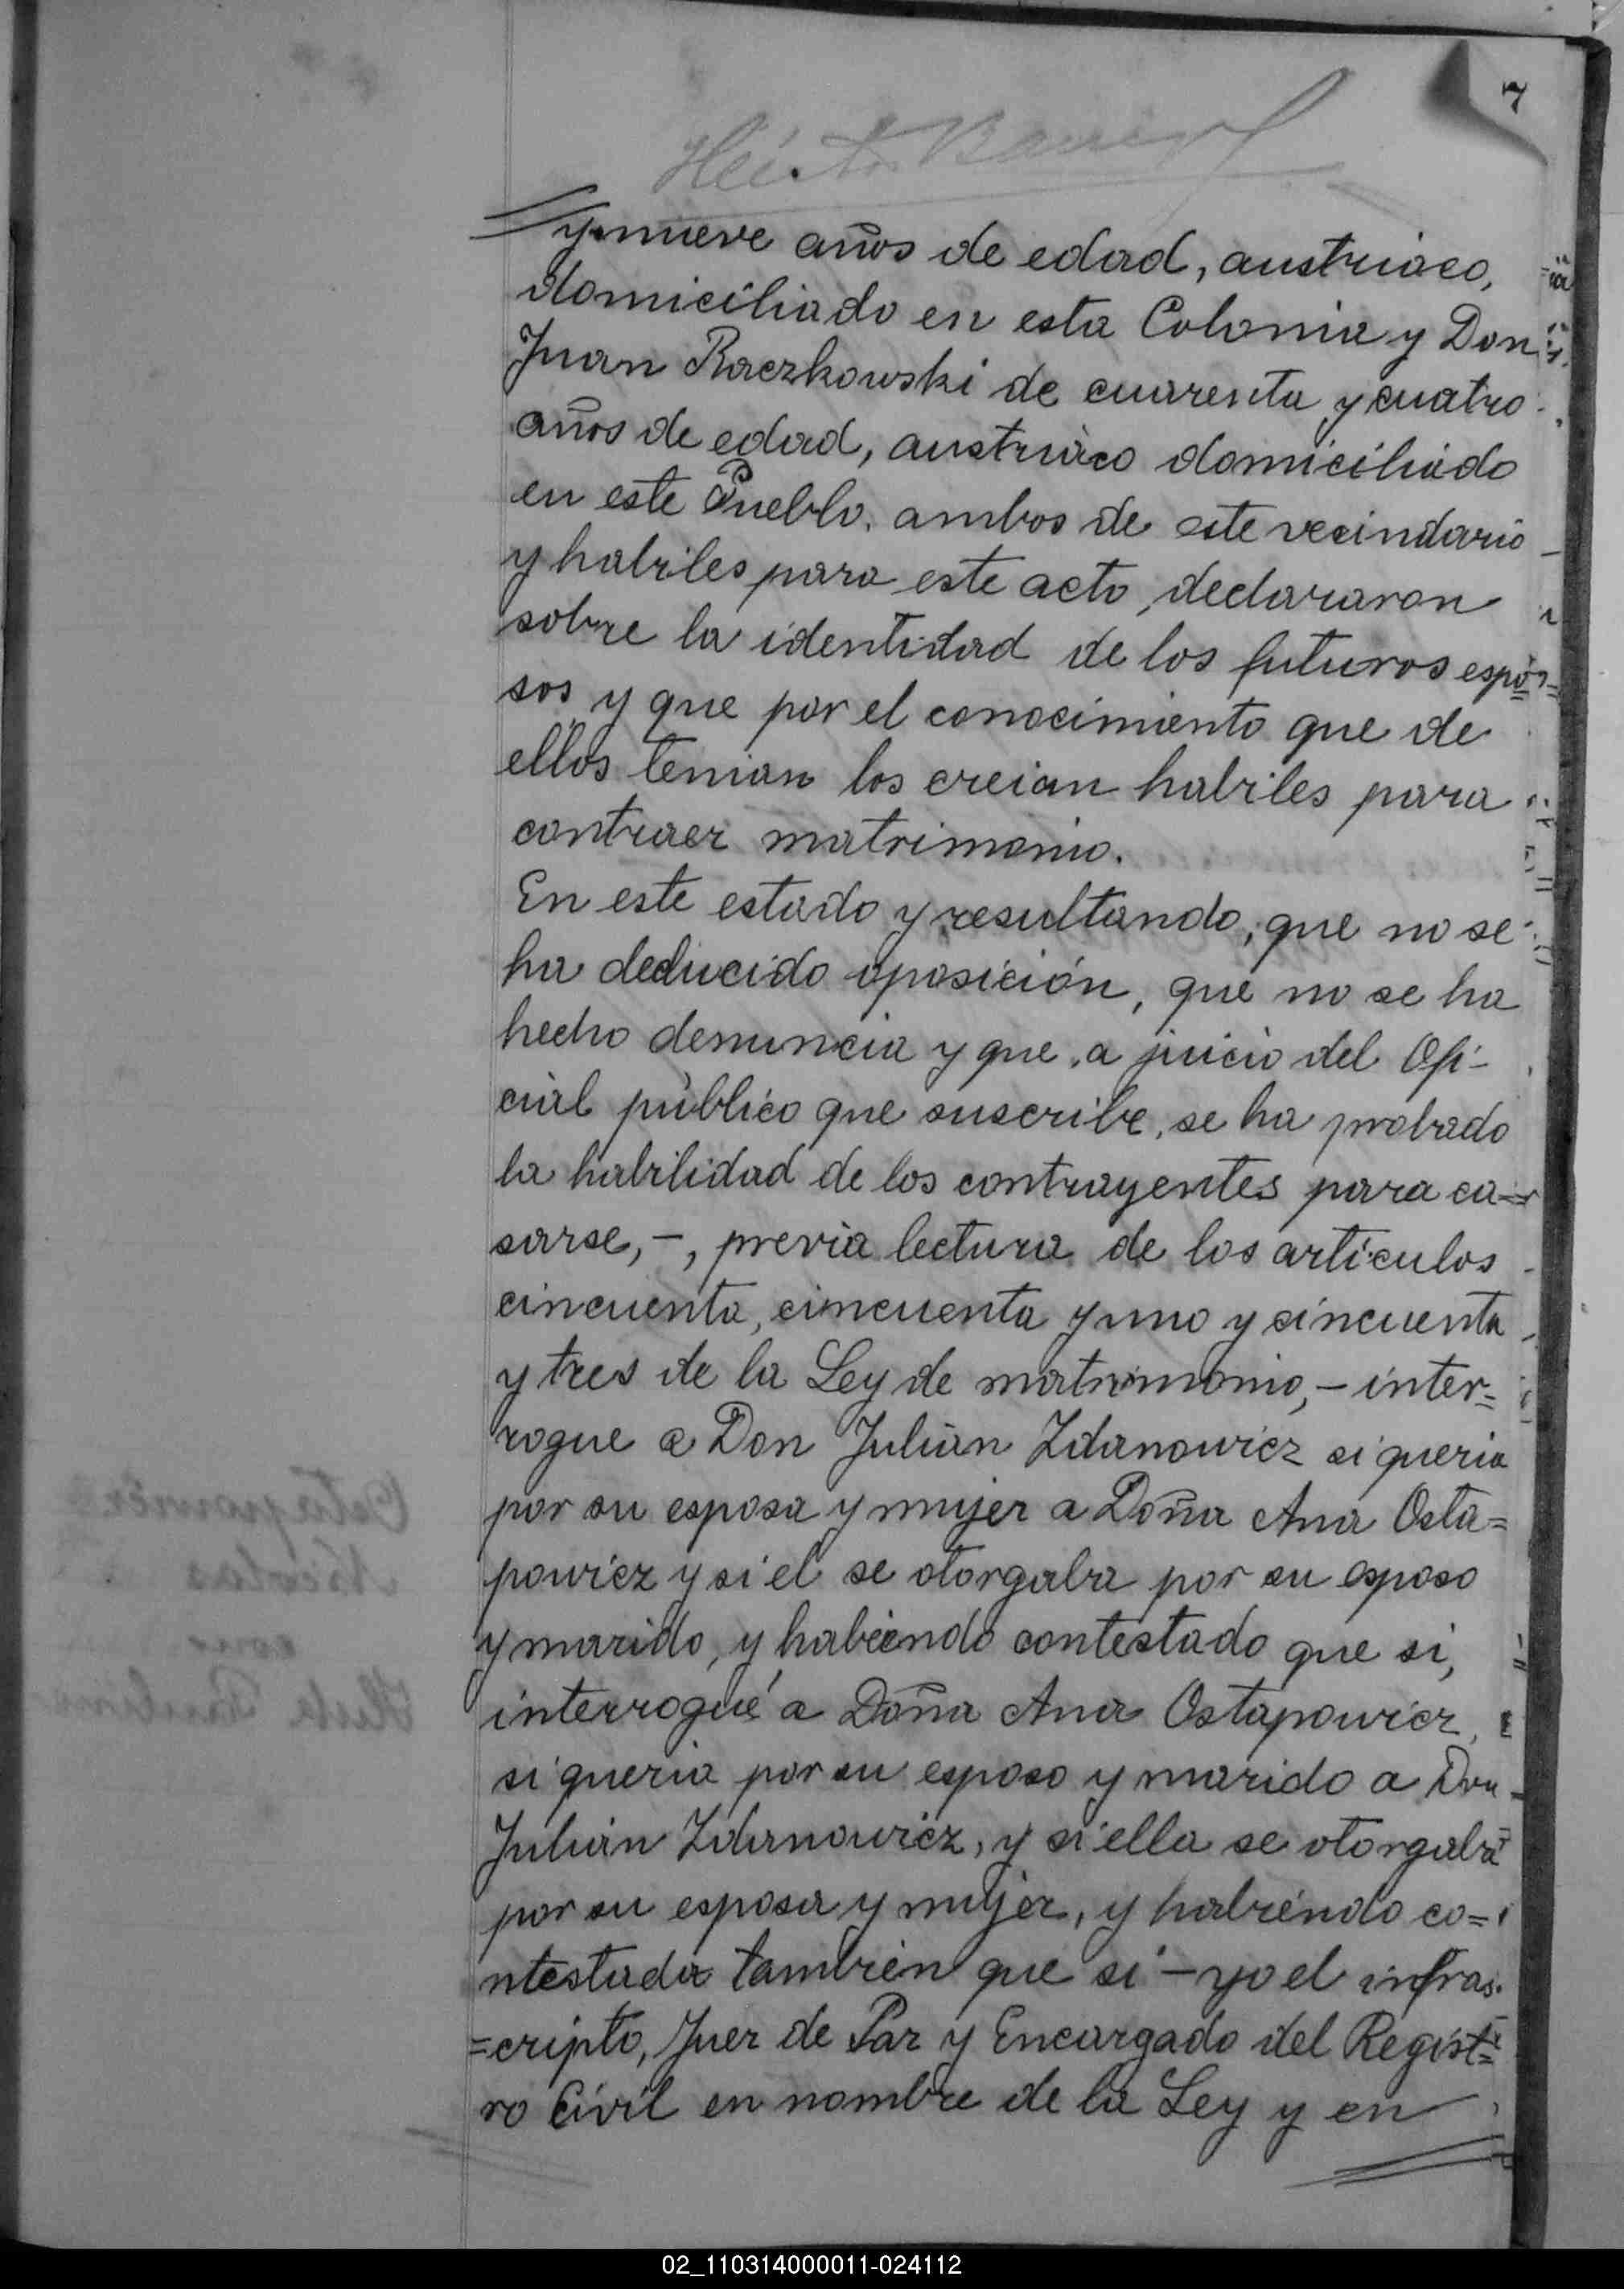 7
y nueve años de edad, austriaco,
domiciliado en esta Colonia y Don
Juan Raczkowski de cuarenta y cuatro
años de edad, austriaco domiciliado
en este Pueblo. ambos de este vecindario
y habiles para este acto, declararon
sobre la identidad de los futuros espo=
sos y que por el conocimiento que de
ellos tenian los creian habiles para
contraer matrimonio.
En este estado y resultando, que no se
ha deducido oposición, que no se ha
hecho denuncia y que a juicio del Ofi-
cial público que suscribe, se ha probado
la habilidad de los contrayentes para ca=
sarse,-, previa lectura de los artículos
cincuenta, cincuenta y uno y cincuenta
y tres de la Ley de matrimonio,- inter=
rogue a Don Julián Zdanowicz si queria
por su esposa y mujer a Doña Ana Osta=
powicz y si el se otorgaba por su esposo
y marido, y habiendo contestado que si,
interrogué a Doña Ana Ostapowicz,
si queria por su esposo y marido a Don
Julián Zdanowicz, y si ella se otorgaba
por su esposa y mujer, y habiendo co=
ntestada también que si - yo el infras.
=cripto, Juez de Paz y Encargado del Regist=
ro Civil en nombre de la Ley y en
02_110314000011-024112